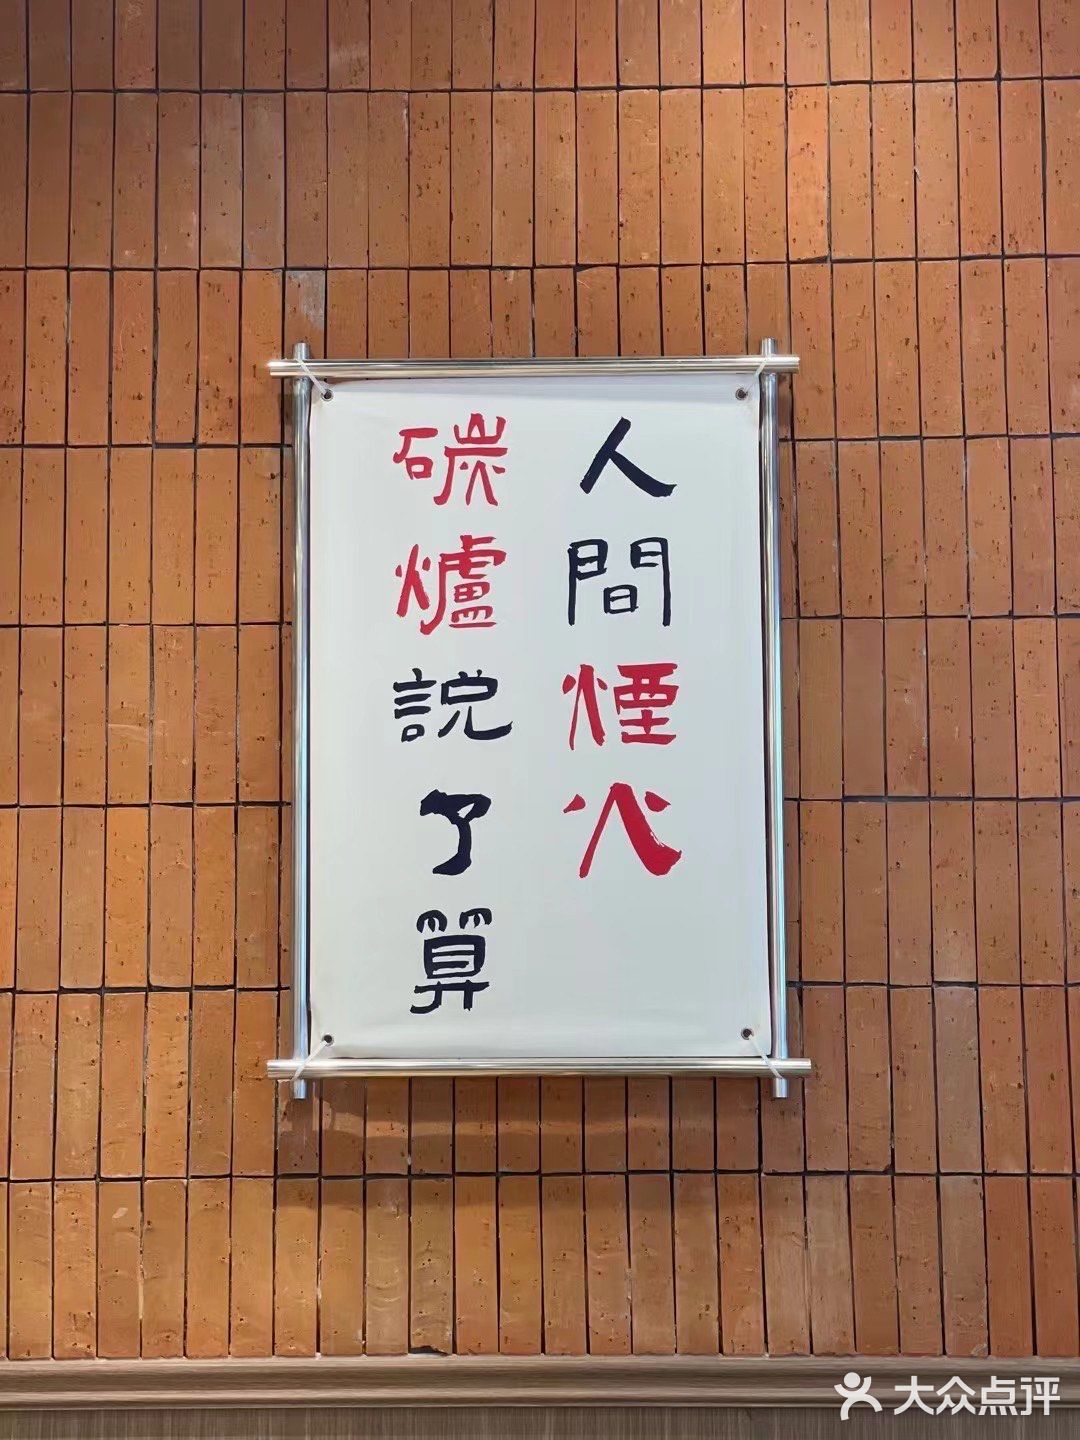 人間煙火
碳爐説了算
大众点评